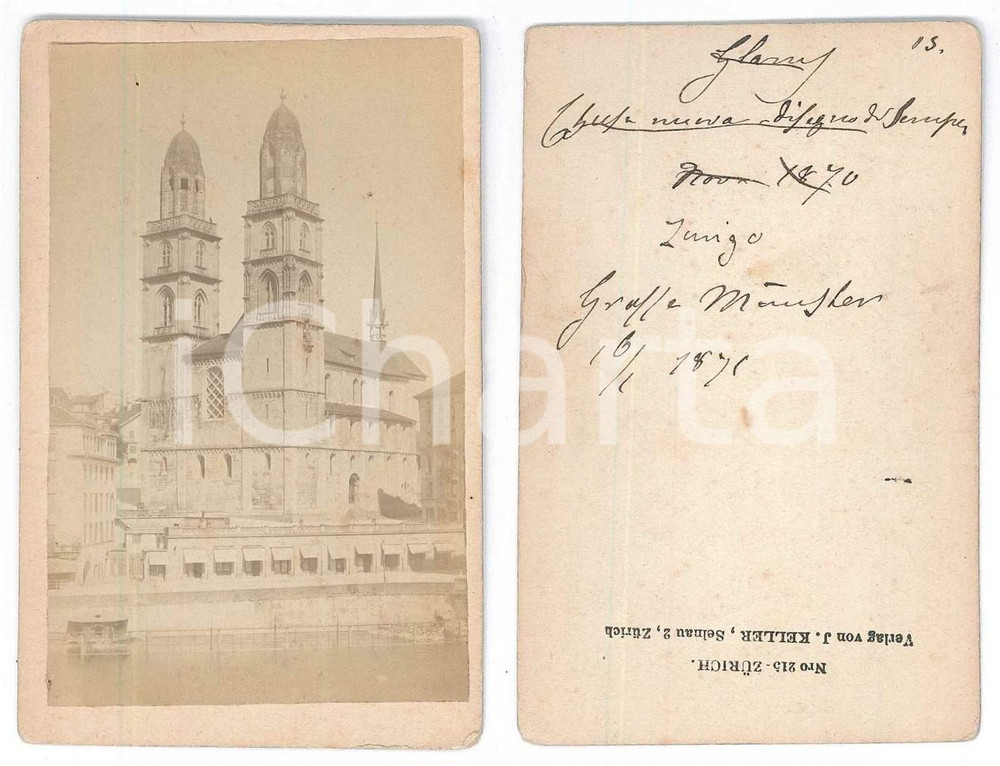 13.
Glarus
Chiesa nuova disegno di Semper
Nov. 1870
Zurigo
Grosse Münster
16/1 1871
iCharta
Nro 215 - ZÜRICH.
Verlag von J. KELLER, Selnau 2, Zürich